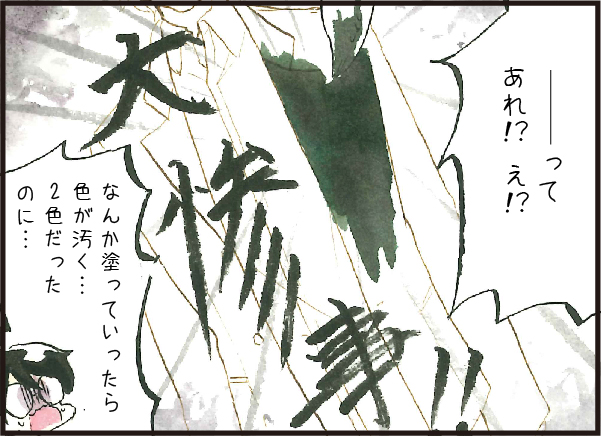 ――って
あれ!? え!?
大惨事!!
なんか塗っていったら
色が汚く…
2色だった
のに…